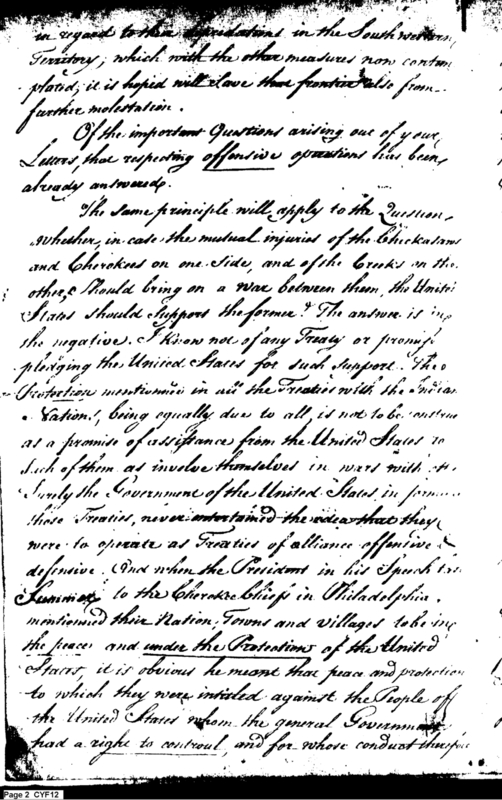 in regard to their depredations in the South western
Territory; which with the other measures now contem
plated, it is hoped will save that frontier also from
further molestation.
Of the important Questions arising out of your
Letters, that respecting offensive operations has been
already answered.
The same principle will apply to the Question,
whether, in case the mutual injuries of the Chickasaws
and Cherokees on one Side, and of the Creeks on the
other, should bring on a war between them, the United
States should support the former? The answer is in
the negative. I know not of any Treaty or promise
pledging the United States for such support. The
Protection mentioned in all the Treaties with the Indian
Nations, being equally due to all, is not to be construe
as a promise of assistance from the United States to
such of them as involve themselves in wars with
Surely the Government of the United States, in
those Treaties, never entertained the idea that they
were to operate as Treaties of alliance offensive &
defensive. And when the President in his Speech
Summer to the Cherokee Chiefs in Philadelphia.
mentioned their Nation, Towns and villages to be in
the peace and under the Protection of the United
States, it is obvious he meant that peace and protection
to which they were intitled against the People of
the United States whom the general Government
had a right to controul, and for whose conduct therefore
Page 2 CYF12